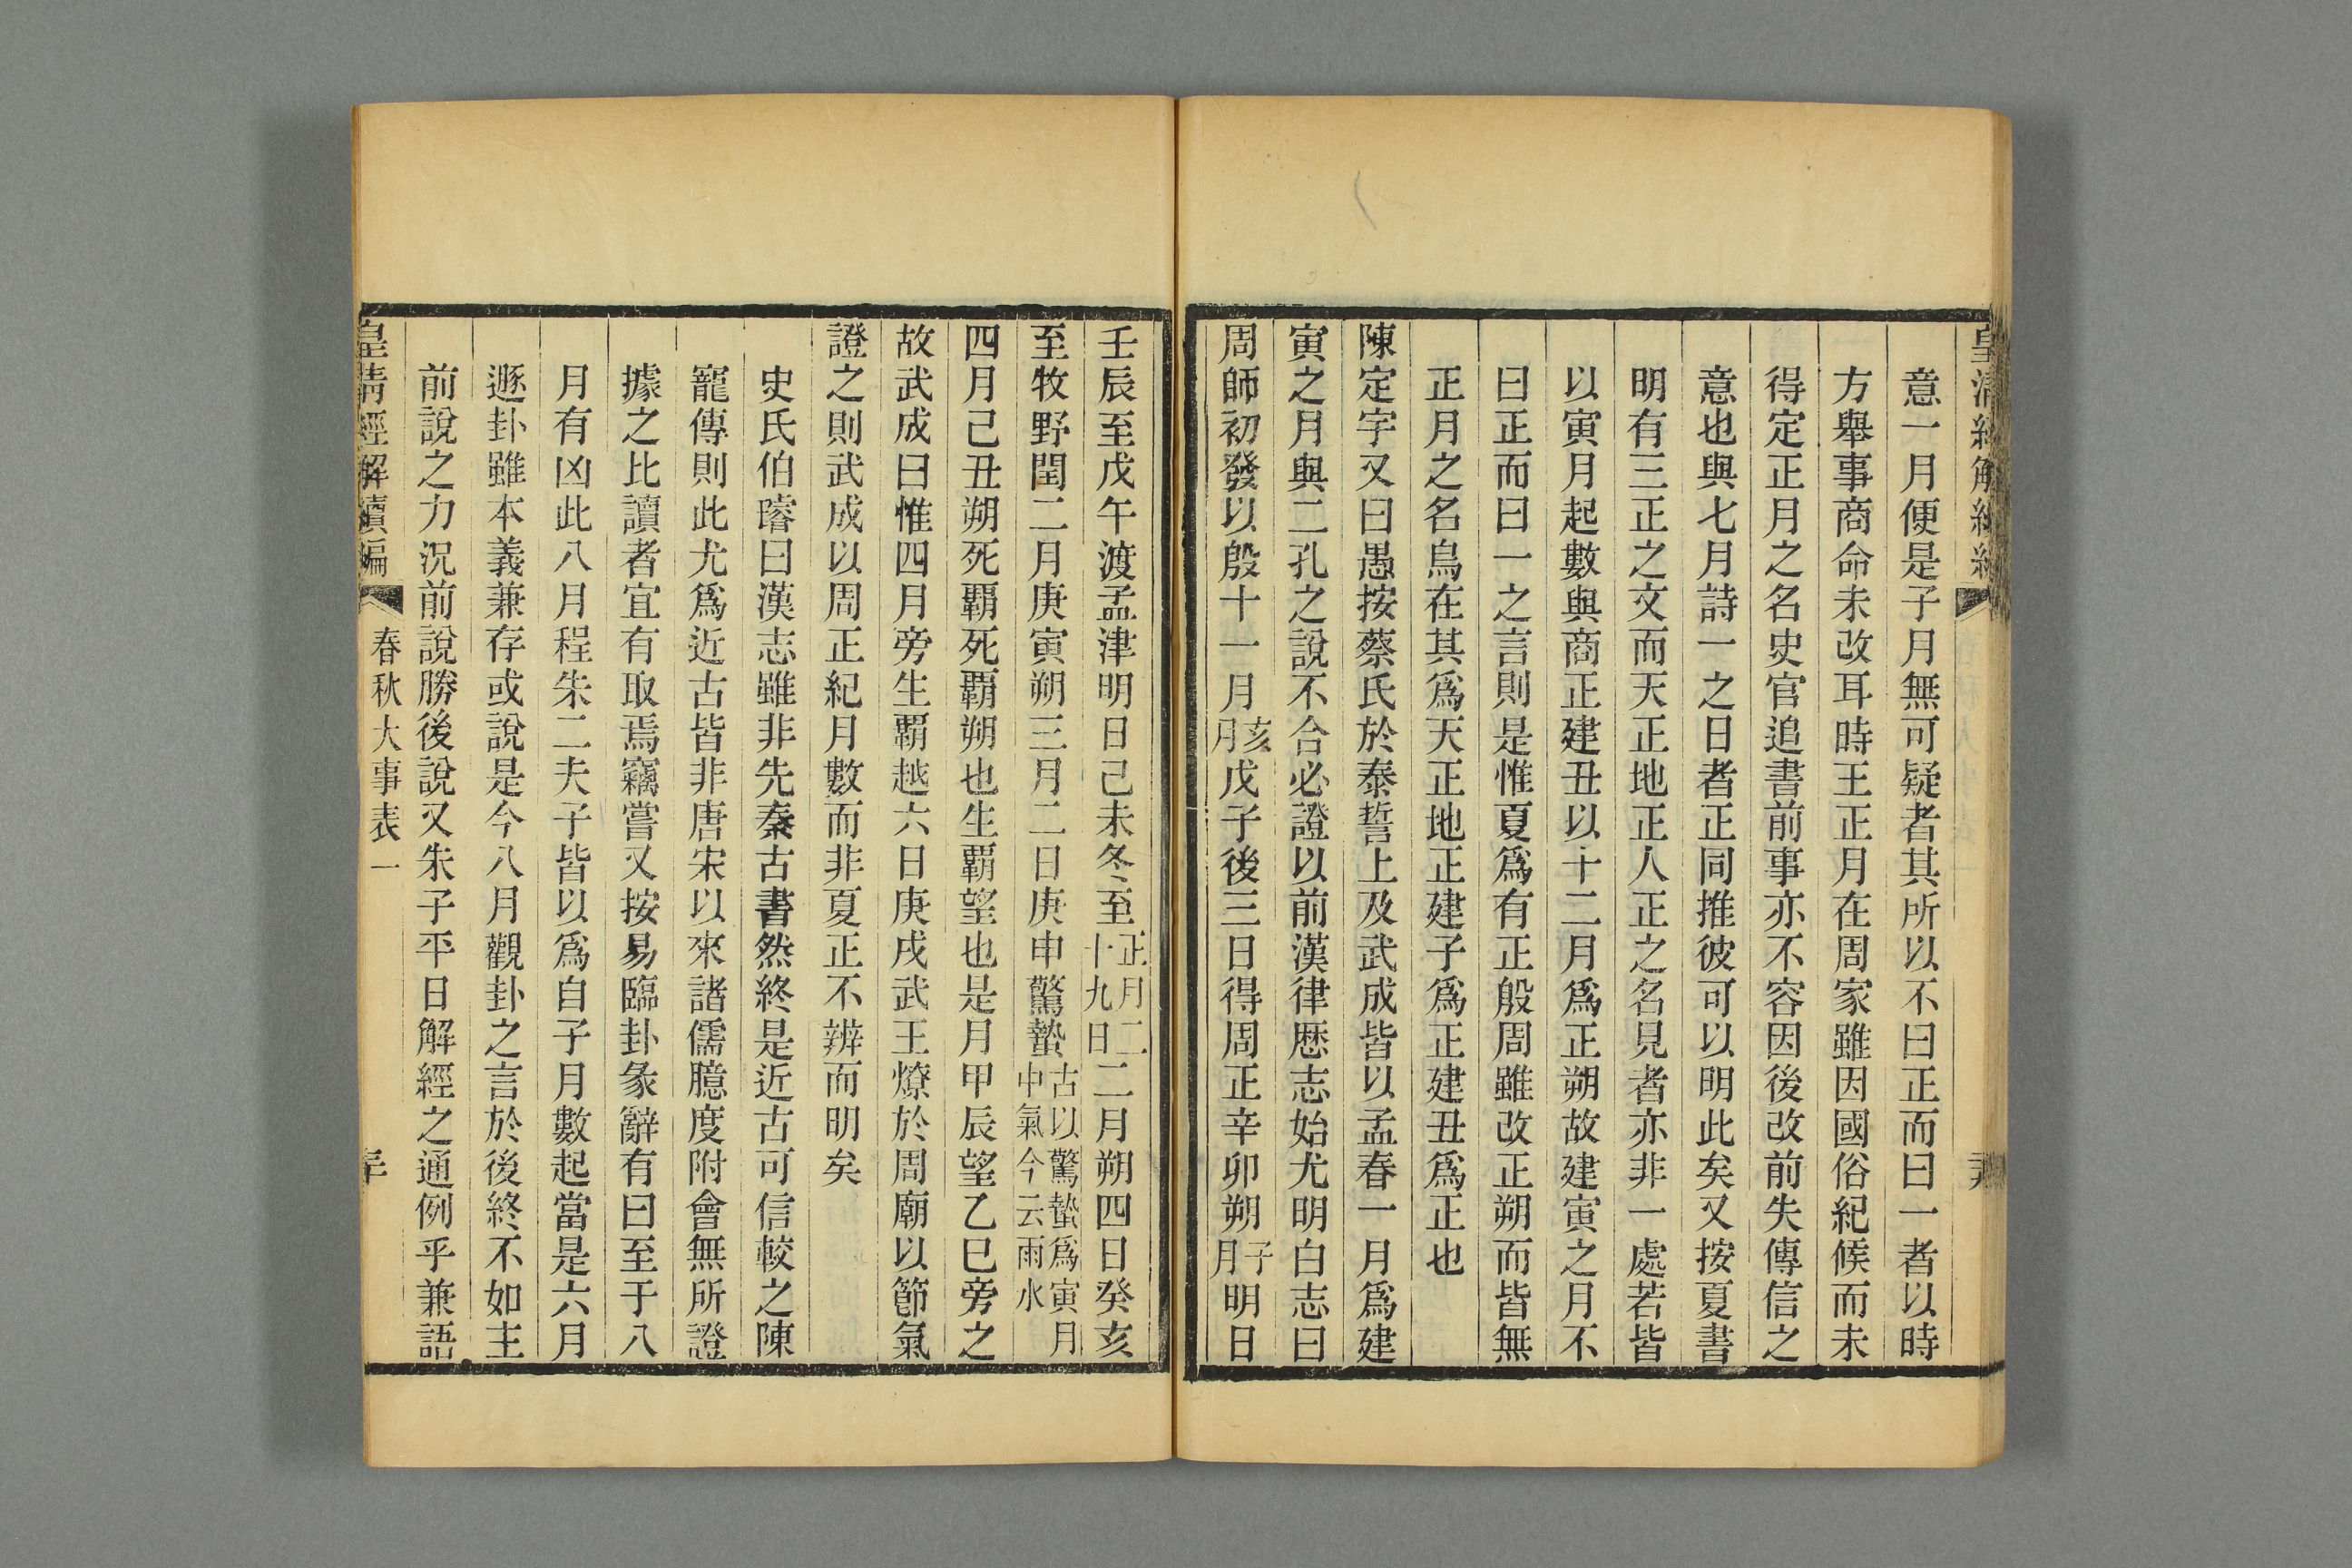 皇清經解續編
意一月便是子月無可疑者其所以不曰正而曰一者以時
方舉事商命未改耳時王正月在周家雖因國俗紀候而未
得定正月之名史官追書前事亦不容因後改前失傳信之
意也與七月詩一之日者正同推彼可以明此矣又按夏書
明有三正之文而天正地正人正之名見者亦非一處若皆
以寅月起數與商正建丑以十二月爲正朔故建寅之月不
曰正而曰一之言則是惟夏爲有正殷周雖改正朔而皆無
正月之名烏在其爲天正地正建子爲正建丑爲正也
陳定宇又曰愚按蔡氏於泰誓上及武成皆以孟春一月爲建
寅之月與二孔之說不合必證以前漢律歷志始尤明白志曰
周師初發以殷十一月亥月戊子後三日得周正辛卯朔子月明日
壬辰至戊午渡孟津明日己未冬至正月二十九日二月朔四日癸亥
至牧野閏二月庚寅朔三月二日庚申驚蟄古以驚蟄爲寅月中氣今云雨水
四月己丑朔死霸死霸朔也生霸望也是月甲辰望乙巳旁之
故武成曰惟四月旁生霸越六日庚戌武王燎於周廟以節氣
證之則武成以周正紀月數而非夏正不辨而明矣
史氏伯璿曰漢志雖非先秦古書然終是近古可信較之陳
寵傳則此尤爲近古皆非唐宋以來諸儒臆度附會無所證
據之比讀者宜有取焉竊嘗又按易臨卦彖辭有曰至于八
月有凶此八月程朱二夫子皆以爲自子月數起當是六月
遯卦雖本義兼存或說是今八月觀卦之言於後終不如主
前說之力況前說勝後說又朱子平日解經之通例乎兼語
皇清經解續編
春秋大事表一